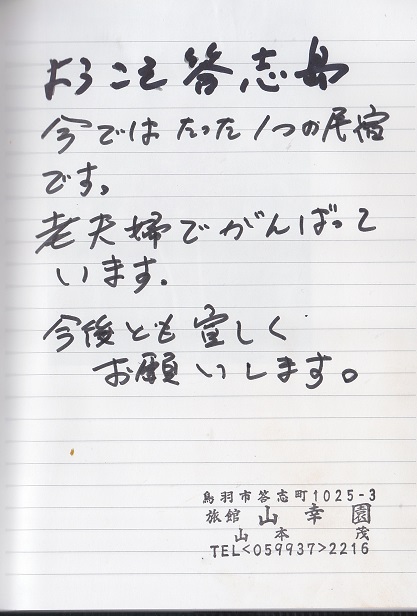 ようこそ答志島
今ではたった1つの民宿
です。
老夫婦でがんばって
います。
今後とも宜しく
お願いします。
鳥羽市答志町1025-3
旅館 山幸園
山本 茂
TEL<059937>2216